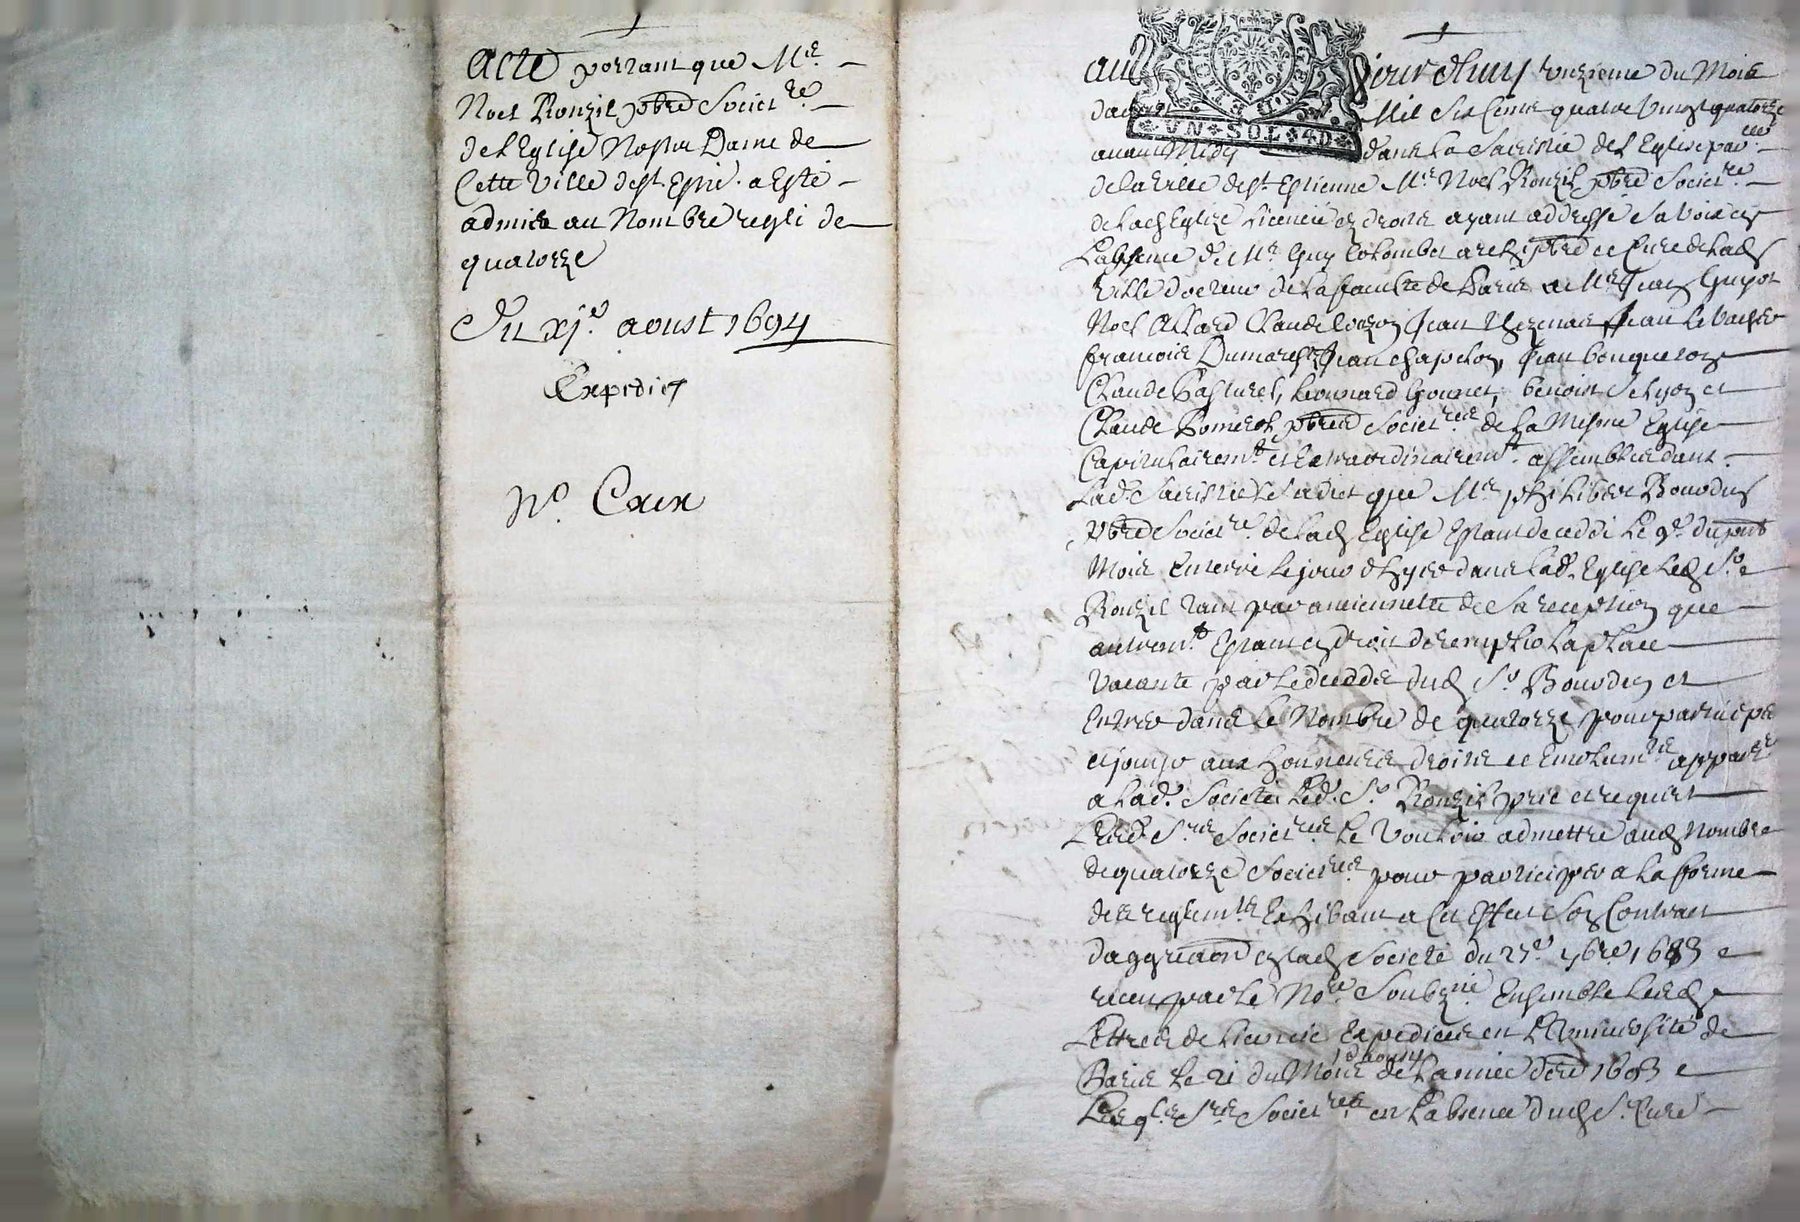 Acte portant que Mre.
Noel Ronzil pbre Societ.re
de l'Eglise Nostre Dame de
Cette Ville de St. Estie. a Esté
admis au Nombre regli de
quatorze
Du xj.e aoust 1694
Expedié
No. Cxcx
au jour d'huy unzieme du Mois
daoust Mil Six Cens quatre vingt quatorze
UN SOL 4D
avant Midy dans la Sacristie de l'Eglise par.lle
de la ville de St. Estienne Mre Noel Ronzil pbre Societ.re
de lad Eglize Licencié en droits ayant addressé sa voix en
Labsence de Mre Guy Colombet archipbre et Curé de lad
ville docteur de la faculté de Paris a Mres Jean Guyot
Noel Allard Claude Jean Thezenas Jean Levacher
francois Dumarest Jean Chapelon, Jean bouqueton
Claude Pasturel, Leonnard Gonnet, benoist et
Claude Pomerol pbres Societ.res de La Mesme Eglise
Capitulairemt. et Extraordinairemt. assemblés dans
Lad. Sacristie Leur a dit que Mre philibert Bourdin
pbre Societ.re de lad Eglise Estant deceddé Le 9e du pnt
Mois Enterré le jour d'hyer dans lad. Eglise Led Sr
Ronzil tant par anciennetté de Sa reception que
autremt. Estant en droit de remplir La place
vacante par Le deddes dud Sr Bourdin et
Entrer dans le Nombre de quatorze pour participe
et jouyr aux honneurs droits et Emolum.ts appart.ts
a Lad. Societé Led. Sr Ronzil prie et requiert
Lesd. Srs Societ.res Le vouloir admettre aud Nombre
de quatorze Societres pour participer a La forme
des reglem.ts Exhibant a Cet Effet Son Contract
daggreaon en lad Societé du 27e 9bre 1683
receu par Le No.re Soubz.né Ensemble Lesd
Lettres de Licencié Expediées en L'Université de
Paris Le 21 du Mois d'aoust de Lannée dere 1693
Lesquels Srs Societ.res en Labsence dud Sr. Curé